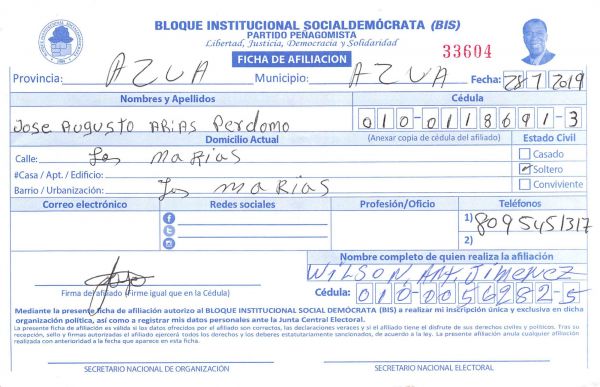 BLOQUE INSTITUCIONAL SOCIALDEMÓCRATA (BIS)
PARTIDO PEÑAGOMISTA
Libertad, Justicia, Democracia y Solidaridad
FICHA DE AFILIACION
33604
Provincia: AZUA Municipio: AZUA Fecha: 28/7/2019
Nombres y Apellidos Cédula
Jose Augusto Arias Perdomo 010-0118691-3
Domicilio Actual (Anexar copia de cédula del afiliado) Estado Civil
Calle: Las MARIAS Casado
#Casa / Apt. / Edificio: Soltero
Barrio / Urbanización: Las MARIAS Conviviente
Correo electrónico Redes sociales Profesión/Oficio Teléfonos
1) 8095451317
2)
Nombre completo de quien realiza la afiliación
WILSON Ant. Jimenez
Firma del afiliado (Firme igual que en la Cédula) Cédula: 010-0056282-5
Mediante la presente ficha de afiliación autorizo al BLOQUE INSTITUCIONAL SOCIAL DEMÓCRATA (BIS) a realizar mi inscripción única y exclusiva en dicha
organización política, así como a registrar mis datos personales ante la Junta Central Electoral.
La presente ficha de afiliación es válida si los datos ofrecidos por el afiliado son correctos, las declaraciones veraces y si el afiliado tiene el disfrute de sus derechos civiles y políticos. Tras su
recepción, sello y firmas autorizadas el afiliado ejercerá todos los derechos y los deberes estatutariamente sancionados, de acuerdo a la ley. La presente afiliación anula cualquier afiliación
realizada con anterioridad a la fecha que aparece en esta ficha.
SECRETARIO NACIONAL DE ORGANIZACIÓN SECRETARIO NACIONAL ELECTORAL